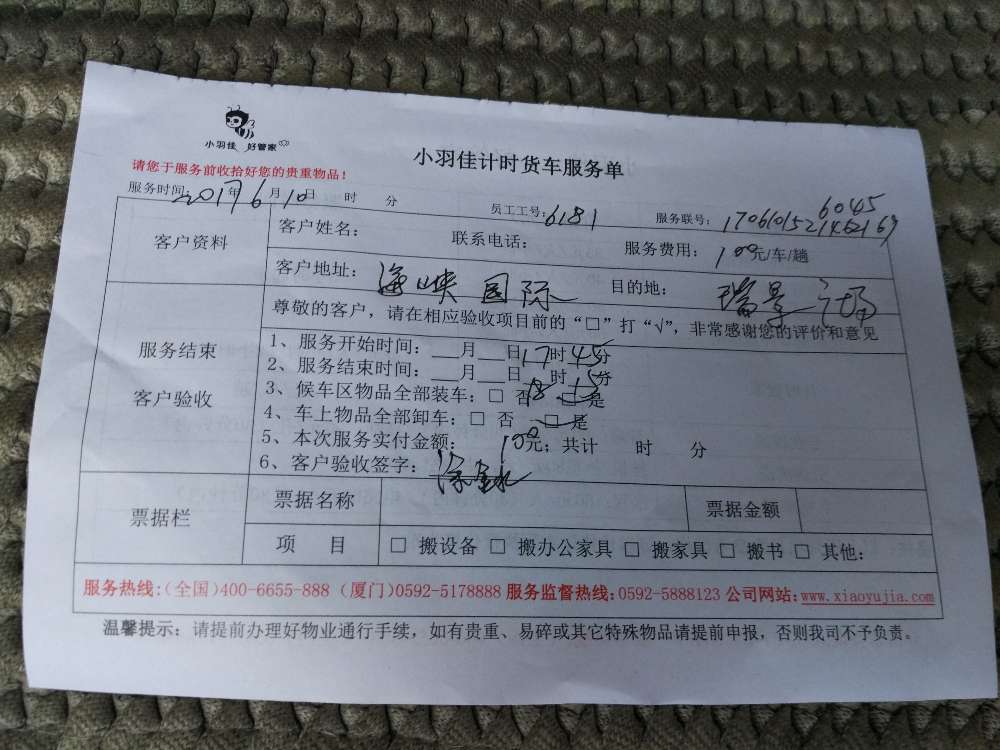 小羽佳 好管家
小羽佳计时货车服务单
请您于服务前收拾好您的贵重物品！
6045
服务时间：2017年6月10日 时 分 员工工号：6181 服务联号：
客户资料
客户姓名： 联系电话： 服务费用：100元/车/趟
客户地址：海峡国际 目的地：瑞景
服务结束
客户验收
尊敬的客户，请在相应验收项目前的“□”打“√”，非常感谢您的评价和意见
1、服务开始时间：___月___日17时45分
2、服务结束时间：___月___日18时15分
3、候车区物品全部装车：□ 否 □ 是
4、车上物品全部卸车：□ 否 □ 是
5、本次服务实付金额：100元；共计 时 分
6、客户验收签字：
票据栏
票据名称 票据金额
项 目 □ 搬设备 □ 搬办公家具 □ 搬家具 □ 搬书 □ 其他：
服务热线：（全国）400-6655-888（厦门）0592-5178888 服务监督热线：0592-5888123 公司网站：www.xiaoyujia.com
温馨提示：请提前办理好物业通行手续，如有贵重、易碎或其它特殊物品请提前申报，否则我司不予负责。